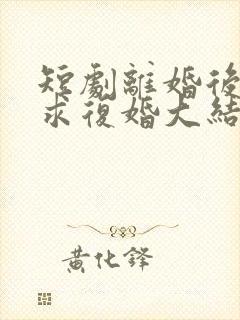 短劇離婚後
求復婚大結
黄化鋒